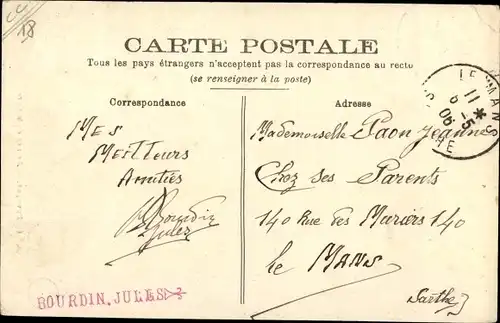 18
CARTE POSTALE
Tous les pays étrangers n'acceptent pas la correspondance au recto
(se renseigner à la poste)
Correspondance
Mes
Meilleurs
Amitiés
Bourdin
Jules
BOURDIN, JULES
Adresse
Mademoiselle Paon Jeanne
Chez ses Parents
140 Rue des Muriers 140
le MANS
Sarthe
LE MANS
11 * 
6 -5
06